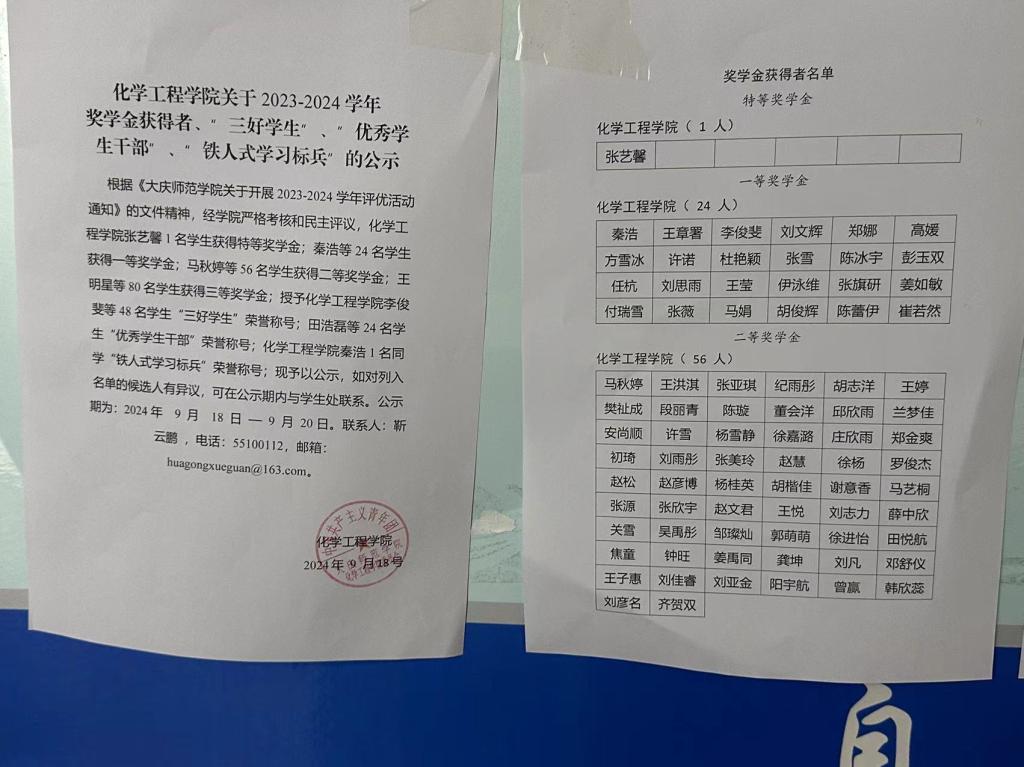 化学工程学院关于 2023-2024 学年
奖学金获得者、“三好学生”、“优秀学
生干部”、“铁人式学习标兵”的公示
根据《大庆师范学院关于开展 2023-2024 学年评优活动
通知》的文件精神，经学院严格考核和民主评议，化学工
程学院张艺馨 1 名学生获得特等奖学金；秦浩等 24 名学生
获得一等奖学金；马秋婷等 56 名学生获得二等奖学金；王
明星等 80 名学生获得三等奖学金；授予化学工程学院李俊
斐等 48 名学生“三好学生”荣誉称号；田浩磊等 24 名学
生“优秀学生干部”荣誉称号；化学工程学院秦浩 1 名同
学“铁人式学习标兵”荣誉称号；现予以公示，如对列入
名单的候选人有异议，可在公示期内与学生处联系。公示
期为：2024 年 9 月 18 日 — 9 月 20 日。联系人：靳
云鹏 ，电话：55100112，邮箱：
huagongxueguan@163.com。
中国共产主义青年团
化学工程学院
2024 年 9 月 18 号
奖学金获得者名单
特等奖学金
化学工程学院（ 1 人）
张艺馨
一等奖学金
化学工程学院（ 24 人）
秦浩 王章署 李俊斐 刘文辉 郑娜 高媛
方雪冰 许诺 杜艳颖 张雪 陈冰宇 彭玉双
任杭 刘思雨 王莹 伊泳维 张旗研 姜如敏
付瑞雪 张薇 马娟 胡俊辉 陈蕾伊 崔若然
二等奖学金
化学工程学院（ 56 人）
马秋婷 王洪淇 张亚琪 纪雨彤 胡志洋 王婷
樊祉成 段丽青 陈璇 董会洋 邱欣雨 兰梦佳
安尚顺 许雪 杨雪静 徐嘉潞 庄欣雨 郑金爽
初琦 刘雨彤 张美玲 赵慧 徐杨 罗俊杰
赵松 赵彦博 杨桂英 胡楷佳 谢意香 马艺桐
张源 张欣宇 赵文君 王悦 刘志力 薛中欣
关雪 吴禹彤 邹璨灿 郭萌萌 徐进怡 田悦航
焦童 钟旺 姜禹同 龚坤 刘凡 邓舒仪
王子惠 刘佳睿 刘亚金 阳宇航 曾赢 韩欣蕊
刘彦名 齐贺双
自